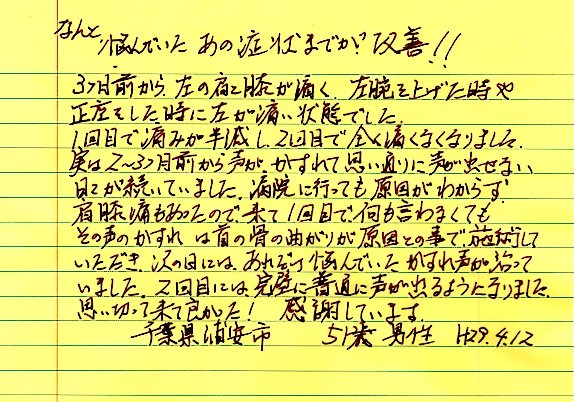 なんと、悩んでいた あの症状までが改善!!
3ヶ月前から、左の肩と膝が痛く、左腕を上げた時や
正座をした時に左が痛い状態でした。
1回目で痛みが半減し、2回目で全く痛くなくなりました。
実は2〜3ヶ月前から声が かすれて思い通りに声が出せない
日々が続いていました。病院に行っても原因がわからず
肩膝痛もあったので来て1回目で何も言わなくても
その声のかすれ は首の骨の曲がりが原因との事で施術して
いただき、次の日には、あれだけ悩んでいた かすれ声が治って
いました。2回目には完璧に普通に声が出るようになりました。
思い切って来て良かった! 感謝しています。
千葉県浦安市 51歳 男性 H29.4.12